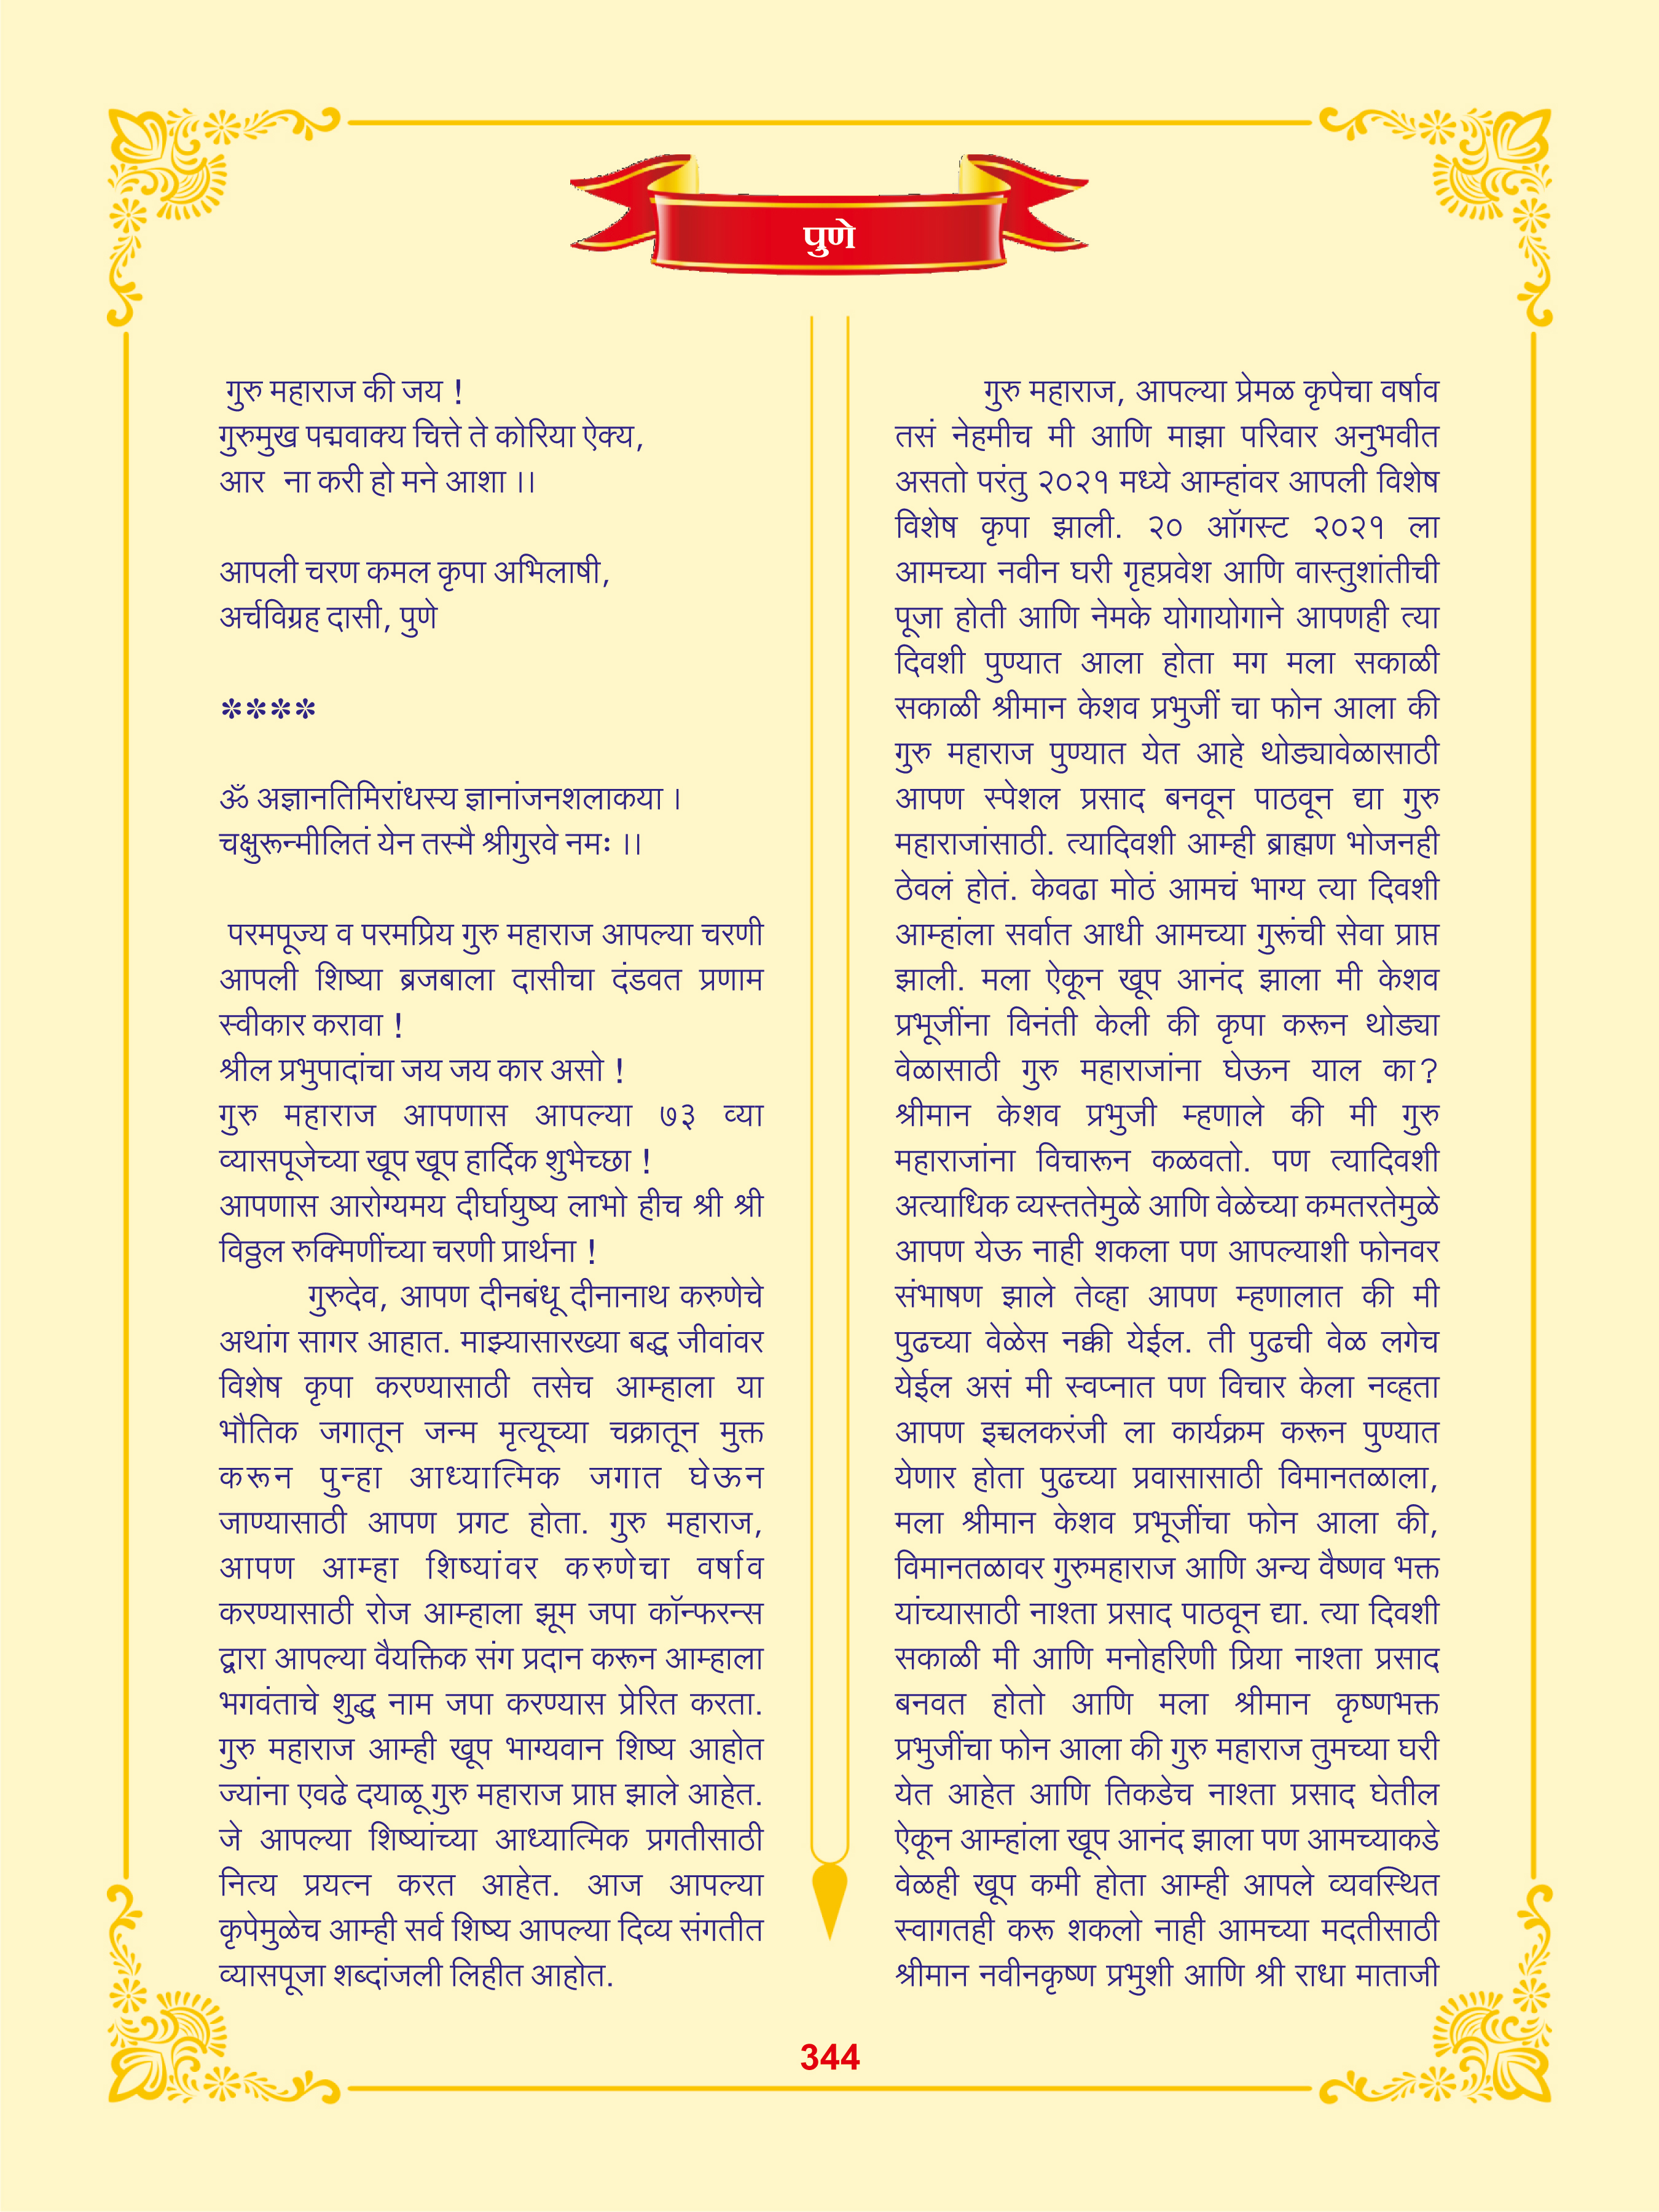 पुणे
गुरु महाराज की जय !
गुरुमुख पद्मवाक्य चित्ते ते कोरिया ऐक्य,
आर ना करी हो मने आशा ।।
आपली चरण कमल कृपा अभिलाषी,
अर्चविग्रह दासी, पुणे
****
ॐ अज्ञानतिमिरांधस्य ज्ञानांजनशलाकया ।
चक्षुरून्मीलितं येन तस्मै श्रीगुरवे नमः ।।
परमपूज्य व परमप्रिय गुरु महाराज आपल्या चरणी
आपली शिष्या ब्रजबाला दासीचा दंडवत प्रणाम
स्वीकार करावा !
श्रील प्रभुपादांचा जय जय कार असो !
गुरु महाराज आपणास आपल्या ७३ व्या
व्यासपूजेच्या खूप खूप हार्दिक शुभेच्छा !
आपणास आरोग्यमय दीर्घायुष्य लाभो हीच श्री श्री
विठ्ठल रुक्मिणींच्या चरणी प्रार्थना !
गुरुदेव, आपण दीनबंधू दीनानाथ करुणेचे
अथांग सागर आहात. माझ्यासारख्या बद्ध जीवांवर
विशेष कृपा करण्यासाठी तसेच आम्हाला या
भौतिक जगातून जन्म मृत्यूच्या चक्रातून मुक्त
करून पुन्हा आध्यात्मिक जगात घेऊन
जाण्यासाठी आपण प्रगट होता. गुरु महाराज,
आपण आम्हा शिष्यांवर करुणेचा वर्षाव
करण्यासाठी रोज आम्हाला झूम जपा कॉन्फरन्स
द्वारा आपल्या वैयक्तिक संग प्रदान करून आम्हाला
भगवंताचे शुद्ध नाम जपा करण्यास प्रेरित करता.
गुरु महाराज आम्ही खूप भाग्यवान शिष्य आहोत
ज्यांना एवढे दयाळू गुरु महाराज प्राप्त झाले आहेत.
जे आपल्या शिष्यांच्या आध्यात्मिक प्रगतीसाठी
नित्य प्रयत्न करत आहेत. आज आपल्या
कृपेमुळेच आम्ही सर्व शिष्य आपल्या दिव्य संगतीत
व्यासपूजा शब्दांजली लिहीत आहोत.
गुरु महाराज, आपल्या प्रेमळ कृपेचा वर्षाव
तसं नेहमीच मी आणि माझा परिवार अनुभवीत
असतो परंतु २०२१ मध्ये आम्हांवर आपली विशेष
विशेष कृपा झाली. २० ऑगस्ट २०२१ ला
आमच्या नवीन घरी गृहप्रवेश आणि वास्तुशांतीची
पूजा होती आणि नेमके योगायोगाने आपणही त्या
दिवशी पुण्यात आला होता मग मला सकाळी
सकाळी श्रीमान केशव प्रभुजीं चा फोन आला की
गुरु महाराज पुण्यात येत आहे थोड्यावेळासाठी
आपण स्पेशल प्रसाद बनवून पाठवून द्या गुरु
महाराजांसाठी. त्यादिवशी आम्ही ब्राह्मण भोजनही
ठेवलं होतं. केवढा मोठं आमचं भाग्य त्या दिवशी
आम्हांला सर्वात आधी आमच्या गुरूंची सेवा प्राप्त
झाली. मला ऐकून खूप आनंद झाला मी केशव
प्रभूजींना विनंती केली की कृपा करून थोड्या
वेळासाठी गुरु महाराजांना घेऊन याल का?
श्रीमान केशव प्रभुजी म्हणाले की मी गुरु
महाराजांना विचारून कळवतो. पण त्यादिवशी
अत्याधिक व्यस्ततेमुळे आणि वेळेच्या कमतरतेमुळे
आपण येऊ नाही शकला पण आपल्याशी फोनवर
संभाषण झाले तेव्हा आपण म्हणालात की मी
पुढच्या वेळेस नक्की येईल. ती पुढची वेळ लगेच
येईल असं मी स्वप्नात पण विचार केला नव्हता
आपण इच्चलकरंजी ला कार्यक्रम करून पुण्यात
येणार होता पुढच्या प्रवासासाठी विमानतळाला,
मला श्रीमान केशव प्रभूजींचा फोन आला की,
विमानतळावर गुरुमहाराज आणि अन्य वैष्णव भक्त
यांच्यासाठी नाश्ता प्रसाद पाठवून द्या. त्या दिवशी
सकाळी मी आणि मनोहरिणी प्रिया नाश्ता प्रसाद
बनवत होतो आणि मला श्रीमान कृष्णभक्त
प्रभुजींचा फोन आला की गुरु महाराज तुमच्या घरी
येत आहेत आणि तिकडेच नाश्ता प्रसाद घेतील
ऐकून आम्हांला खूप आनंद झाला पण आमच्याकडे
वेळही खूप कमी होता आम्ही आपले व्यवस्थित
स्वागतही करू शकलो नाही आमच्या मदतीसाठी
श्रीमान नवीनकृष्ण प्रभुशी आणि श्री राधा माताजी
344